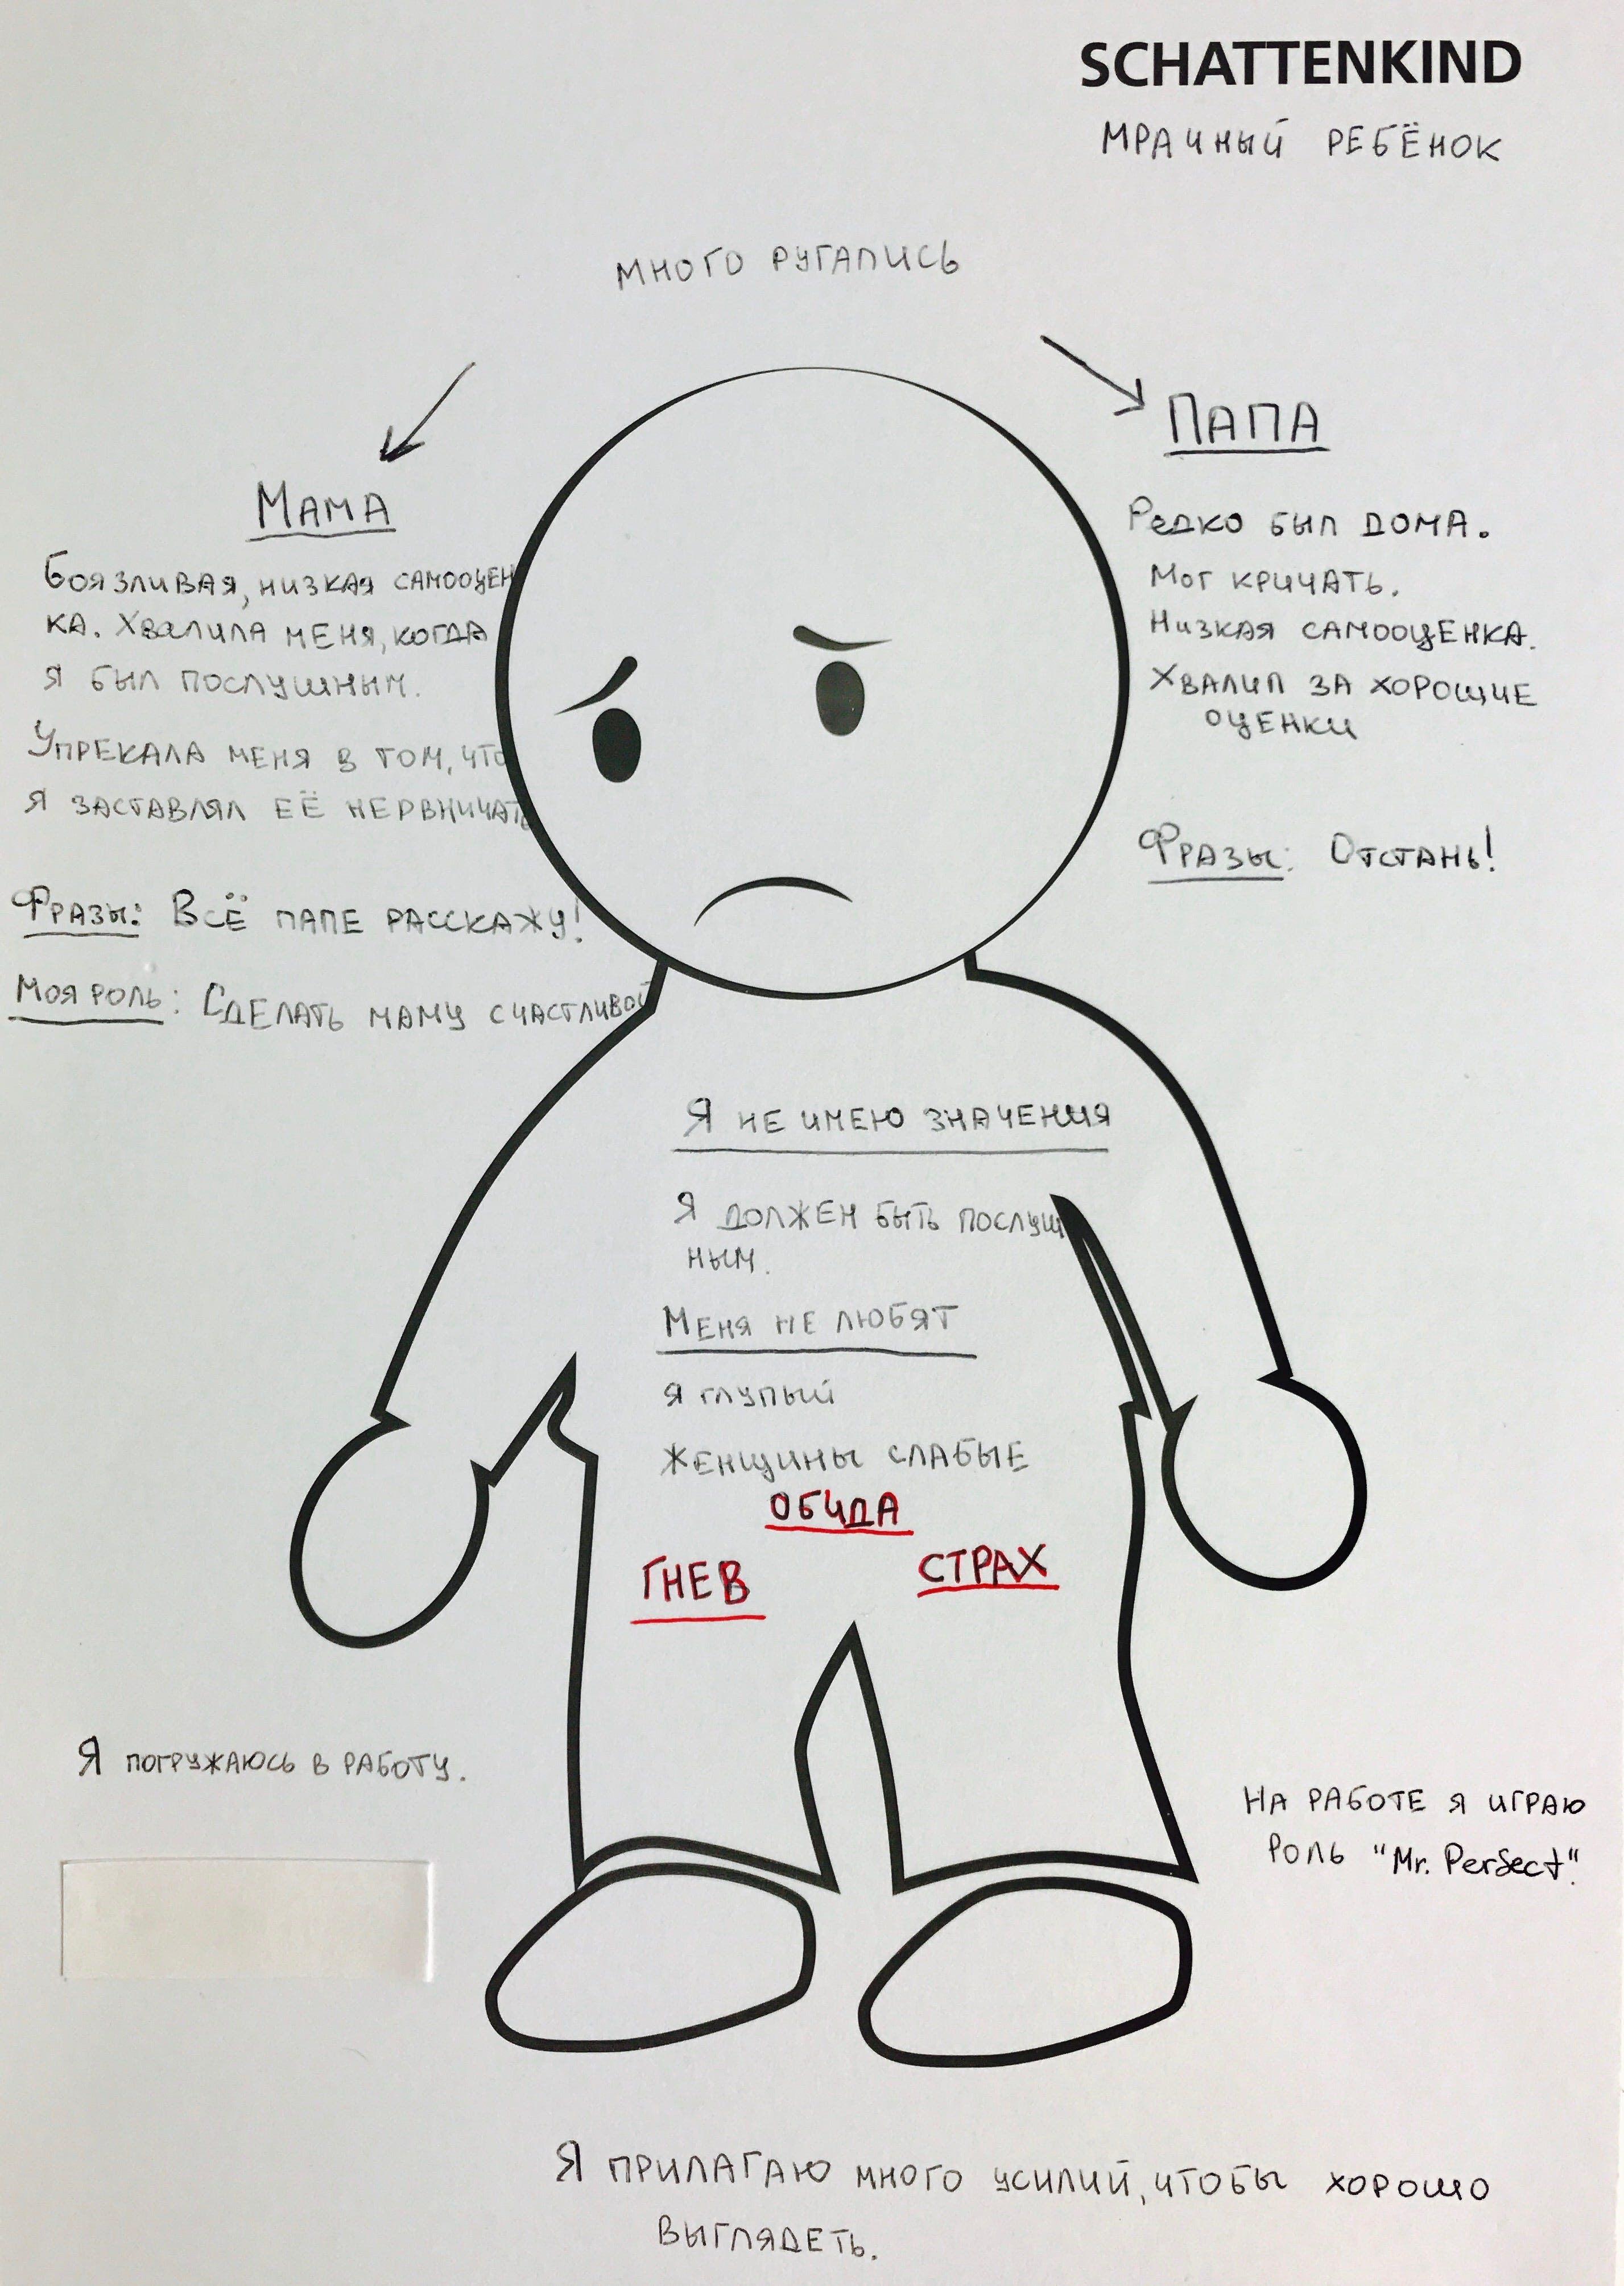 SCHATTENKIND
МРАЧНЫЙ РЕБЁНОК
МНОГО РУГАЛИСЬ
МАМА
БОЯЗЛИВАЯ, НИЗКАЯ САМООЦЕН
КА. ХВАЛИЛА МЕНЯ, КОГДА
Я БЫЛ ПОСЛУШНЫМ.
УПРЕКАЛА МЕНЯ В ТОМ, ЧТО
Я ЗАСТАВЛЯЛ ЕЁ НЕРВНИЧАТЬ
ФРАЗЫ: ВСЁ ПАПЕ РАССКАЖУ!
МОЯ РОЛЬ: СДЕЛАТЬ МАМУ СЧАСТЛИВОЙ
ПАПА
РЕДКО БЫЛ ДОМА.
МОГ КРИЧАТЬ.
НИЗКАЯ САМООЦЕНКА.
ХВАЛИЛ ЗА ХОРОШИЕ
ОЦЕНКИ
ФРАЗЫ: ОТСТАНЬ!
Я НЕ ИМЕЮ ЗНАЧЕНИЯ
Я ДОЛЖЕН БЫТЬ ПОСЛУШ
НЫМ.
МЕНЯ НЕ ЛЮБЯТ
Я ГЛУПЫЙ
ЖЕНЩИНЫ СЛАБЫЕ
ОБИДА
ГНЕВ
СТРАХ
Я ПОГРУЖАЮСЬ В РАБОТУ.
НА РАБОТЕ Я ИГРАЮ
РОЛЬ "Mr. Perfect".
Я ПРИЛАГАЮ МНОГО УСИЛИЙ, ЧТОБЫ ХОРОШО
ВЫГЛЯДЕТЬ.